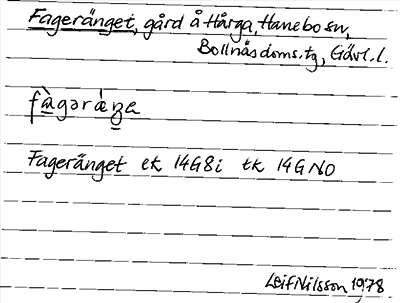 Fageränget, gård å Hårga, Hanebo sn,
Bollnäs doms. tg, Gävl. l.
fàgəráŋa
Fageränget ek 14G8i tk 14G NO
Leif Nilsson 1978